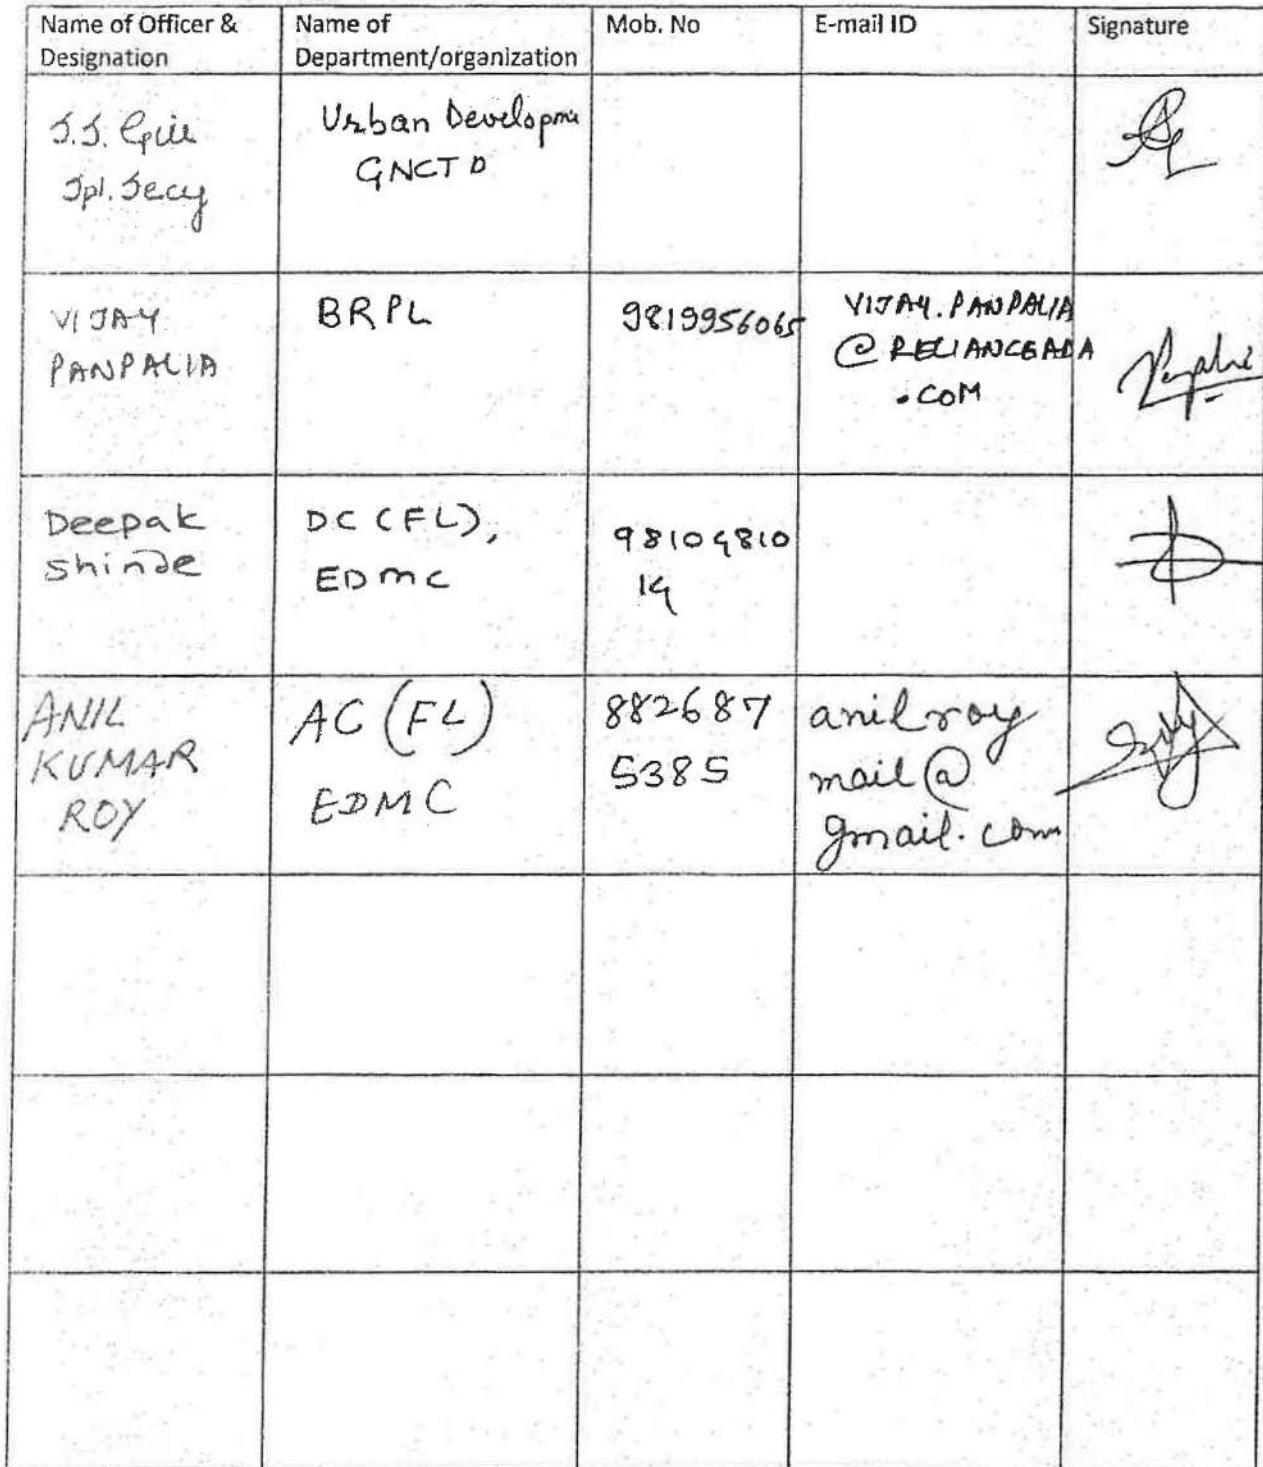 Name of Officer &
Designation
Name of
Department/organization
Mob. No
E-mail ID
Signature
S.S. Gill
Spl. Secy
Urban Developme
GNCTD
VIJAY
PANPALIA
BRPL
9819956065
VIJAY.PANPALIA
@RELIANCEADA
.COM
Deepak
shinde
DC (FL),
EDMC
98104810
14
ANIL
KUMAR
ROY
AC (FL)
EDMC
882687
5385
anilroy
mail@
gmail.com